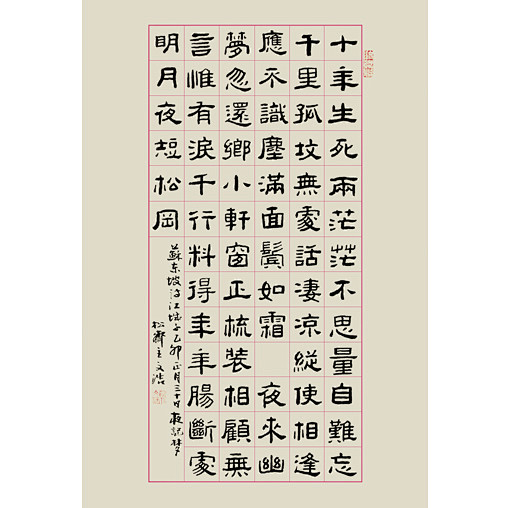 十年生死兩茫茫不思量自難忘
千里孤坟無處話淒涼縱使相逢
應不識塵滿面鬢如霜 夜來幽
夢忽還鄉小軒窗正梳裝相顧無
言惟有淚千行料得年年腸斷處
明月夜短松岡
蘇東坡詞江城子乙卯正月二十日夜記夢
松齋主文浩